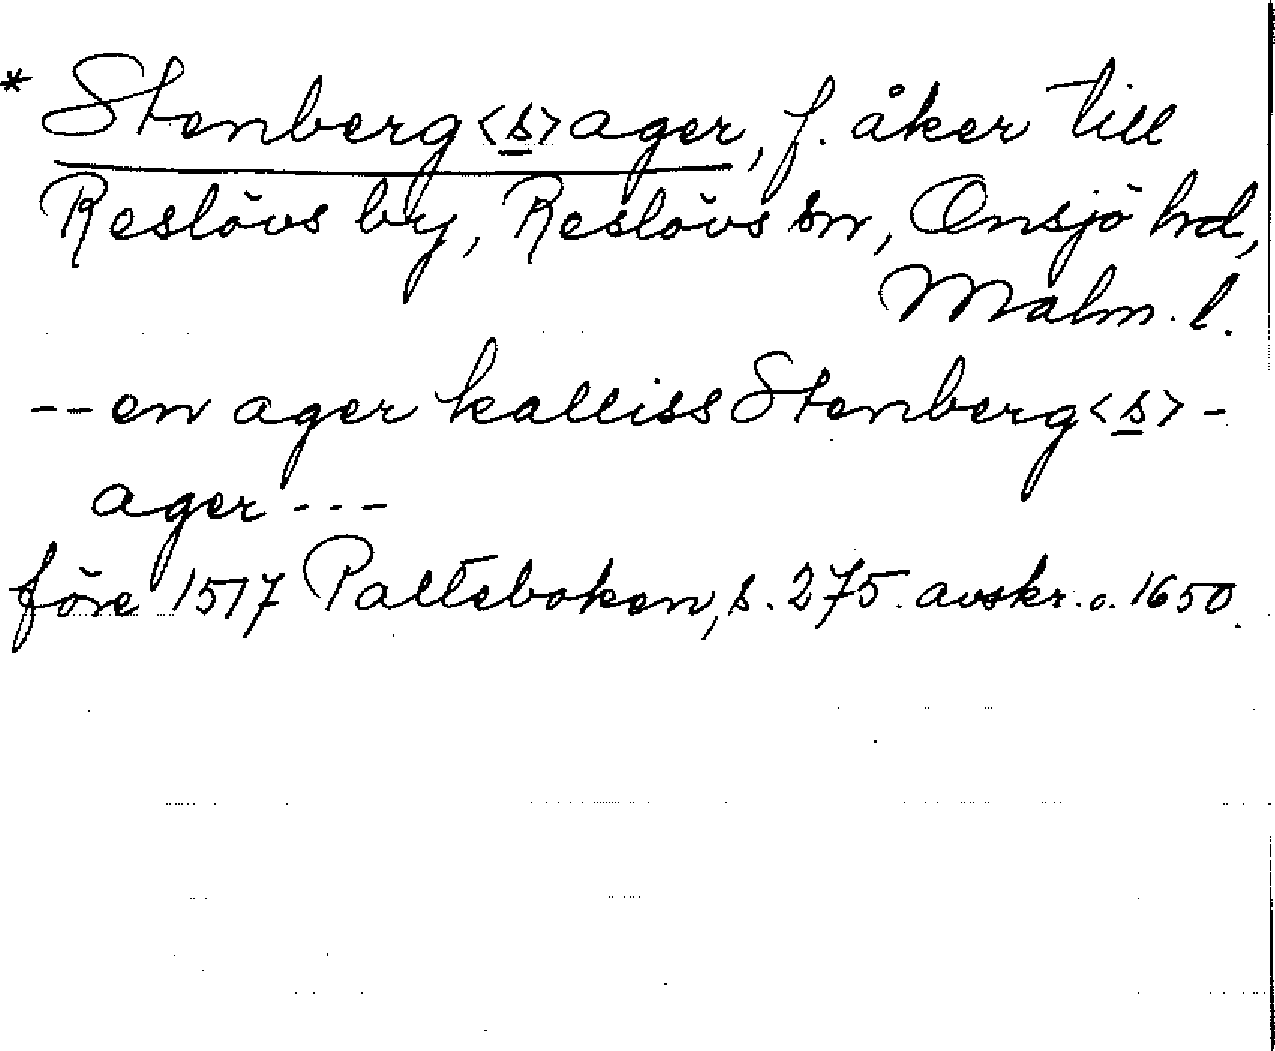 * Stenberg<s>ager, f. åker till
Reslövs by, Reslövs sn, Onsjö hd,
Malm. l.
-- en ager kalliss Stenberg<s>-
ager ---
före 1517 Palteboken, s. 275. avskr. o. 1650.